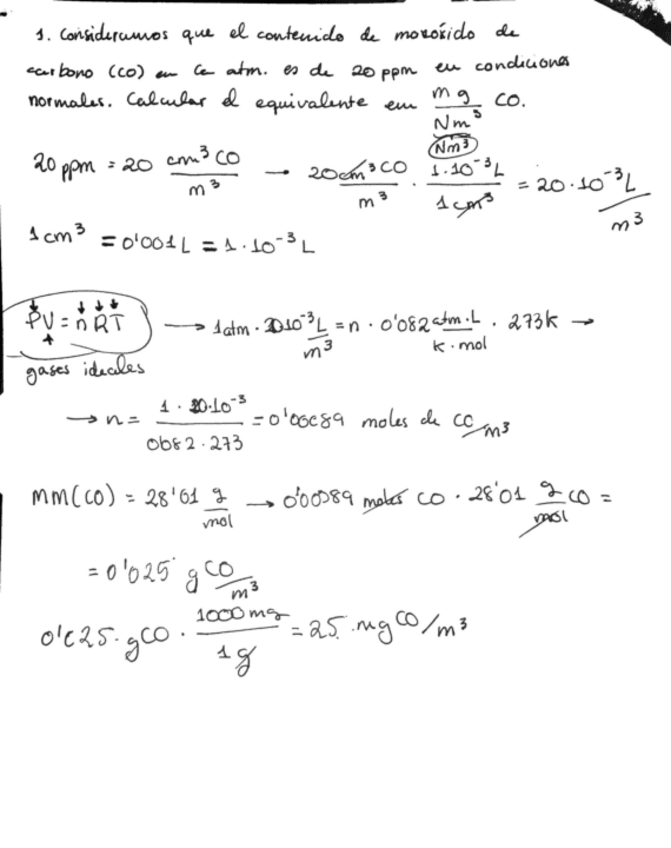 1. Consideramos que el contenido de monóxido de
carbono (CO) en la atm. es de 20 ppm en condiciones
normales. Calcular el equivalente em mg/Nm³ CO.
(Nm³)
20 ppm = 20 cm³ CO/m³ → 20 cm³ CO/m³ · 1·10⁻³ L/1 cm³ = 20·10⁻³ L/m³
1 cm³ = 0'001 L = 1·10⁻³ L
PV = nRT → 1 atm · 20·10⁻³ L/m³ = n · 0'082 atm·L/K·mol · 273 K →
gases ideales
→ n = 1 · 20·10⁻³/0082·273 = 0'00089 moles de CO/m³
MM(CO) = 28'01 g/mol → 0'00089 moles CO · 28'01 g CO/mol =
= 0'025 g CO/m³
0'025 · g CO · 1000 mg/1 g = 25 · mg CO/m³